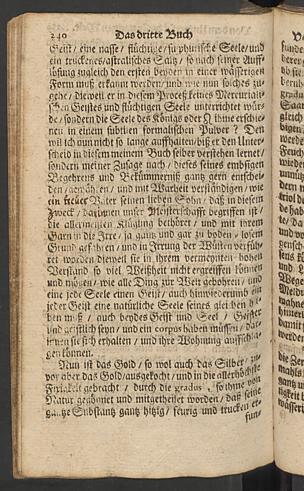 240 Das dritte Buch
Geist / eine nasse / flüchtige / sulphurische Seele / und
ein truckenes / astralisches Saltz / so nach seiner Auff-
lösung zugleich den ersten beyden in einer wässerigen
Form muß erkant werden / und wie nun solches zu-
gehe / dieweil er in diesem Proceß keines Mercuriali-
schen Geistes und flüchtigen Seele unterrichtet wür-
de / sondern die Seele des Königs oder ihme erschie-
nen in einem subtilen formalischen Pulver? Den
will ich nun nicht so lange auffhalten / biß er den Unter-
scheid in diesem meinem Buch selber verstehen lerne /
sondern meiner Zusage nach / dieses seines embsigen
Begehrens und Bekümmerniß gantz gern entschei-
den / gewähren / und mit Warheit verständigen / wie
ein treuer Vater seinen lieben Sohn / daß in diesem
Zweck / darinnen unser Meisterschafft begriffen ist /
die allermeisten Klügling bethöret / und mit ihrem
Garn in die Irre / ja gantz und gar zu boden / losem
Grund gefahren / und in Irrung der Wüsten verfüh-
ret worden dieweil sie in ihrem vermeynten hohen
Verstand so viel Weißheit nicht ergreiffen können
und mögen / wie alle Ding zur Welt gebohren / und
eine jede Seele einen Geist / auch hinwiederumb ein
jeder Geist eine natürliche Seele seines gleichen ha-
ben muß / auch beydes Geist und Seel / Geister
und geistlich seyn / und ein corpus haben müssen / dar-
innen sie sich erhalten / und ihre Wohnung auffschla-
gen können.
Nun ist das Gold / so wol auch das Silber / zu-
vor aber das Gold / ausgekocht / und in die allerhöchste
Fixigkeit gebracht / durch die gradus, so ihme von
Natur geeignet und mitgetheilet worden / daß seine
gantze Substantz gantz hitzig / feurig und trucken er-
fun-